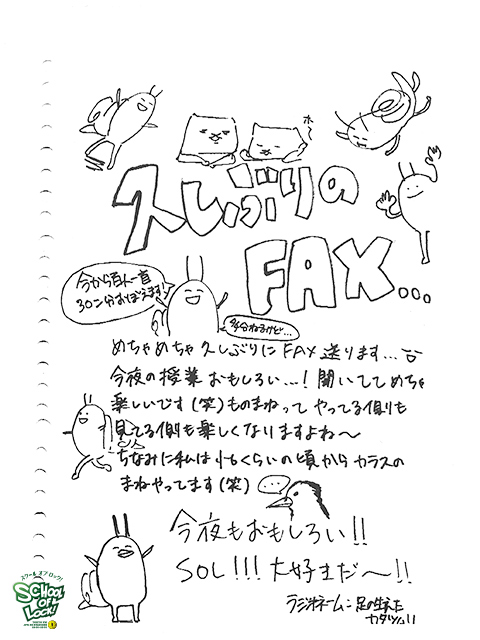 ホ〜
久しぶりの
FAX...
今から百人一首
30コ分おぼえます!
多分ねるけど...
めちゃめちゃ久しぶりに FAX 送ります...
今夜の授業おもしろい...! 聞いててめちゃ
楽しいです(笑) ものまねって やってる側も
見てる側も楽しくなりますよね〜
ちなみに私は小6くらいの頃から カラスの
まねやってます(笑)
...
今夜もおもしろい!!
SOL!!! 大好きだ〜!!
ラジオネーム:足の生えた
カタツムリ
スクール オブ ロック!
SCHOOL
OF
LOCK!